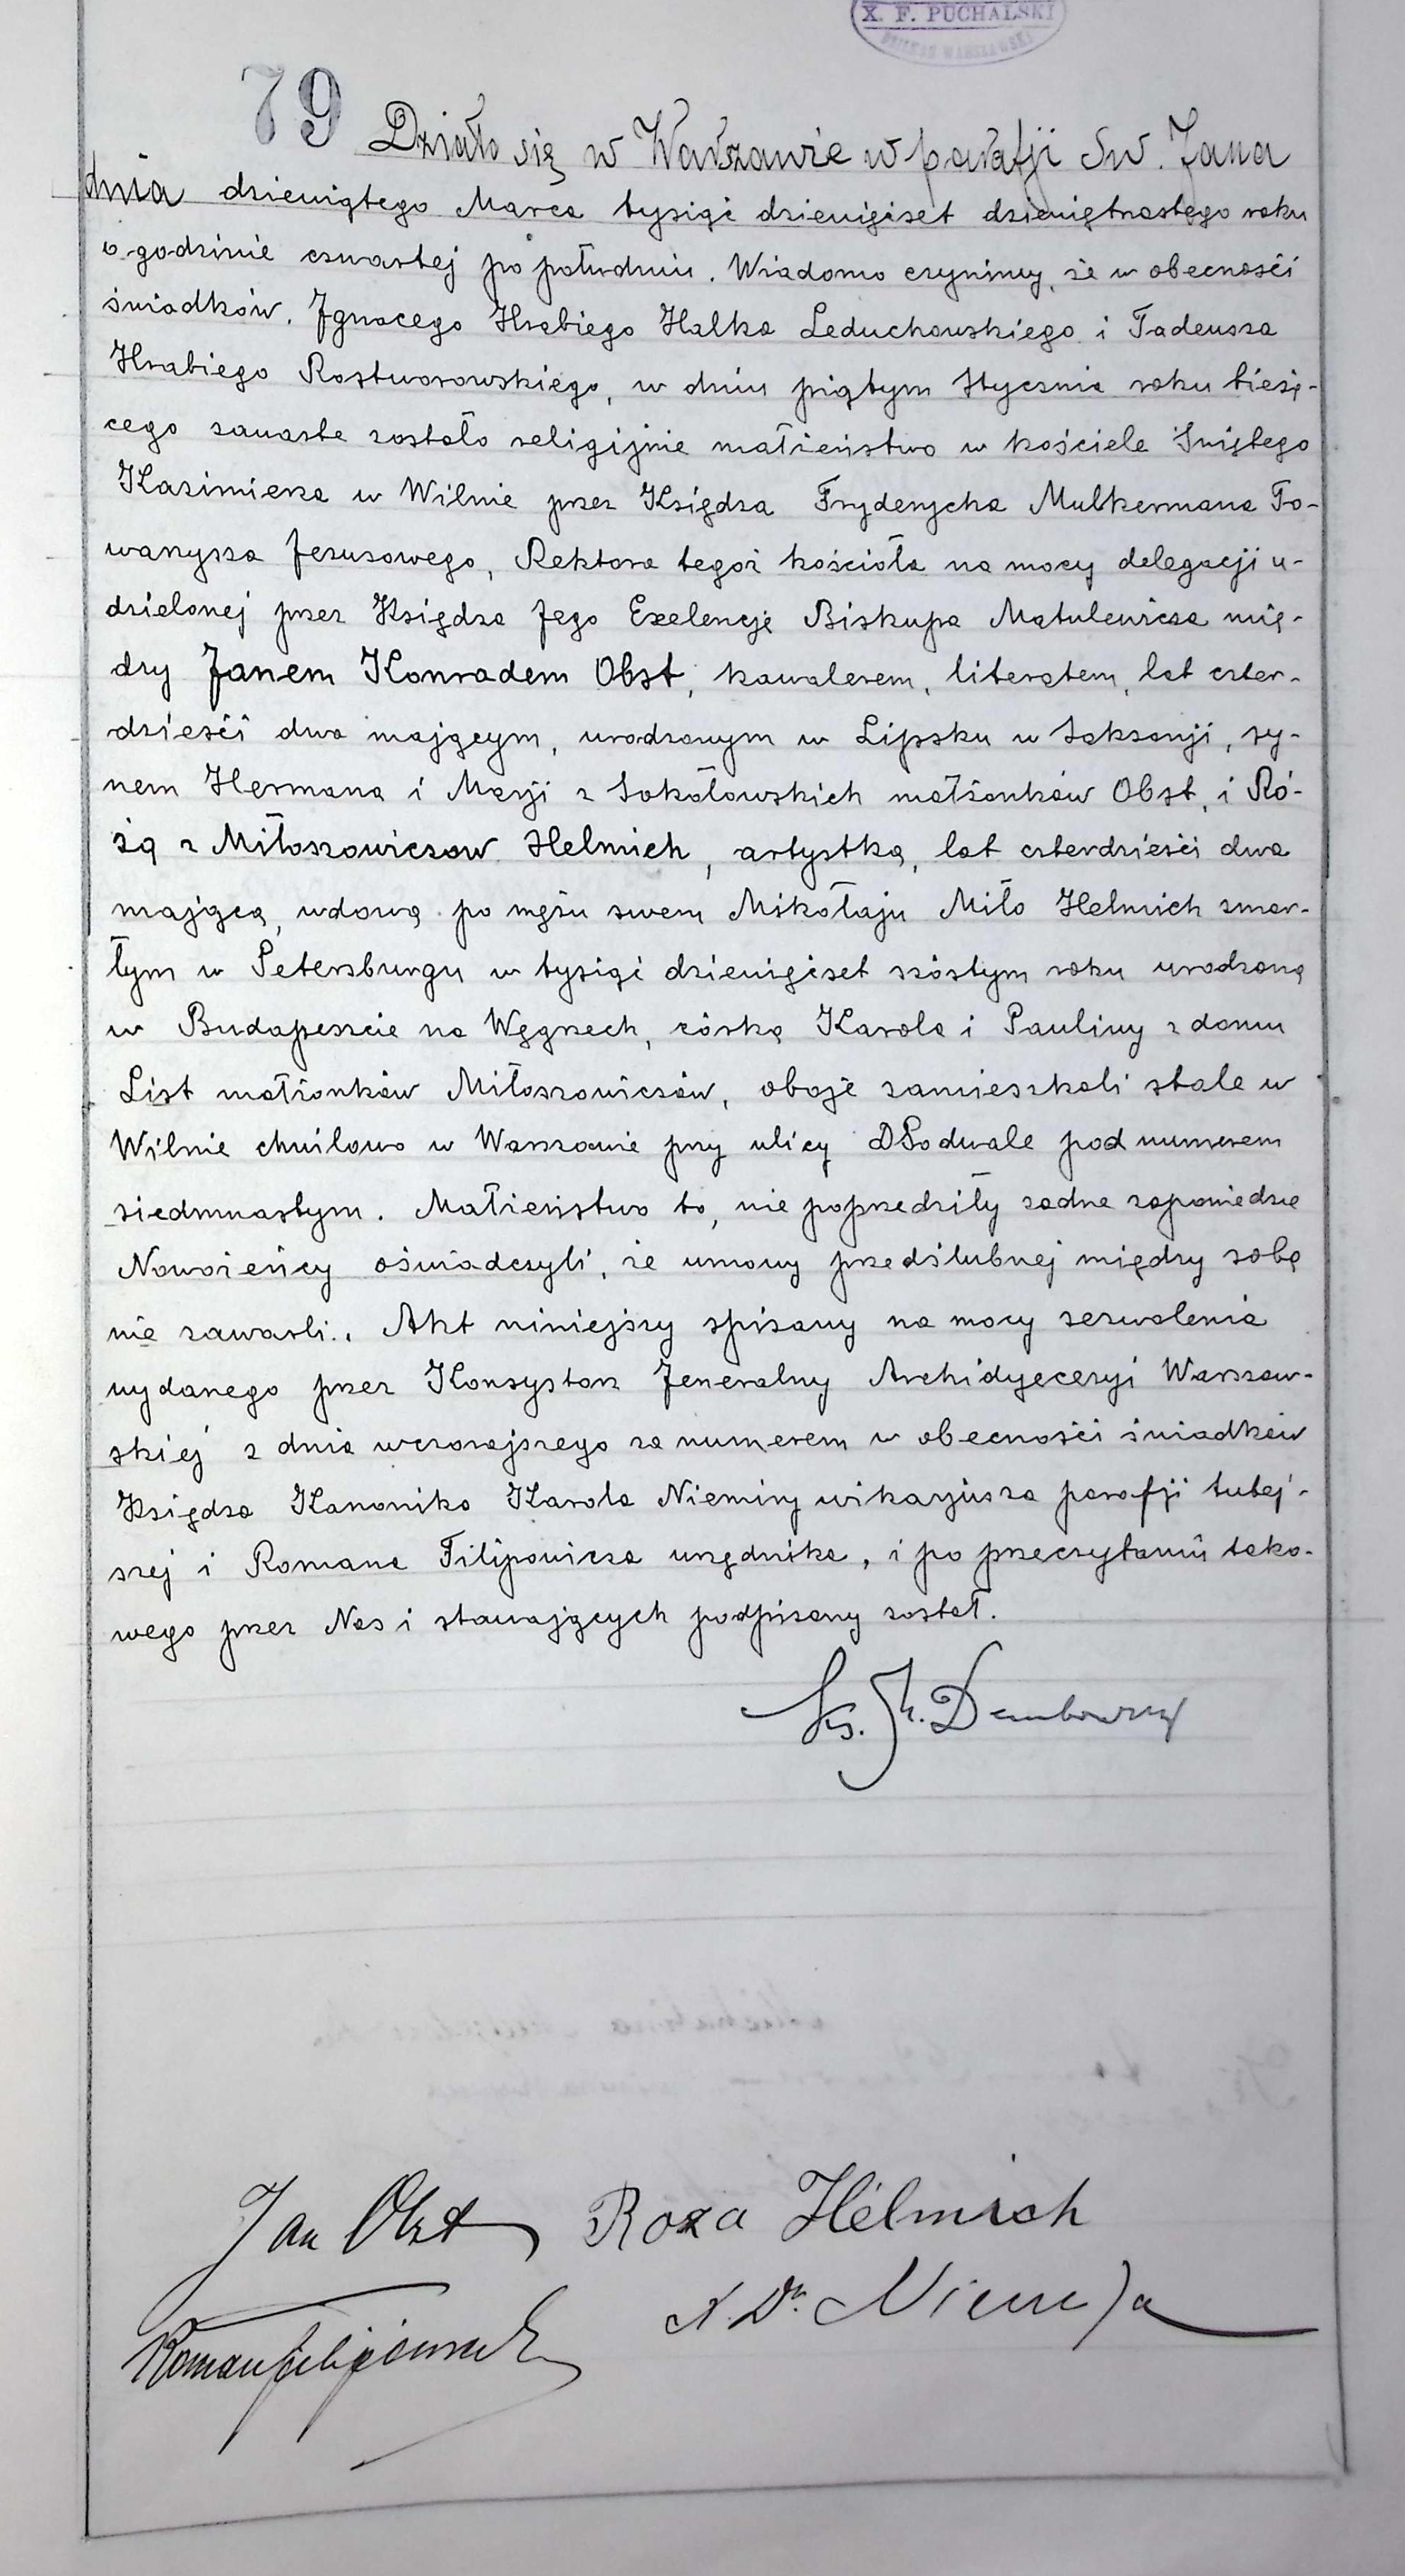 X. F. PUCHALSKI
79 Działo się w Warszawie w parafji Św. Jana
dnia dziewiątego Marca tysiąć dziewięćset dziewiętnastego roku
o godzinie czwartej po południu. Wiadomo czynimy, że w obecności
świadków, Ignacego Hrabiego Halka Leduchowskiego i Tadeusza
Hrabiego Rostworowskiego, w dniu piątym Stycznia roku bieżą-
cego zawarte zostało religijnie małżeństwo w kościele Świętego
Kazimierza w Wilnie przez Księdza Fryderycha Mulkermana To-
warzysza Jezusowego, Rektora tegoż kościoła na mocy delegacji u-
dzielonej przez Księdza Jego Exelencję Biskupa Matulewicza mię-
dzy Janem Konradem Obst, kawalerem, literatem, lat czter-
dzieści dwa mającym, urodzonym w Lipsku w Saksonji, sy-
nem Hermana i Marji z Sokołowskich małżonków Obst, i Ró-
żą z Miłoszowiczow Helmich, artystką, lat czterdzieści dwa
mającą, wdową po mężu swem Mikołaju Miło Helmich zmar-
łym w Petersburgu w tysiąć dziewięćset szóstym roku urodzoną
w Budapeszcie na Węgrzech, córką Karola i Pauliny z domu
List małżonków Miłoszowiczów, oboje zamieszkali stale w
Wilnie chwilowo w Warszawie przy ulicy Podwale pod numerem
siedmnastym. Małżeństwo to, nie poprzedziły żadne zapowiedzie
Nowożeńcy oświadczyli, że umowy przedślubnej między sobą
nie zawarli. Akt niniejszy spisany na mocy zezwolenia
wydanego przez Konsystorz Jeneralny Archidyecezyi Warszaw-
skiej z dnia wczorajszego za numerem w obecności świadków
Księdza Kanonika Karola Niemiry wikarjusza parafji tutej-
szej i Romana Filipowicza urzędnika, i po przeczytaniu tako-
wego przez Nas i stawających podpisany został.
Ks.
Jan Obst Roza Hélmich
X Dr. Niemira
Roman Filipowicz